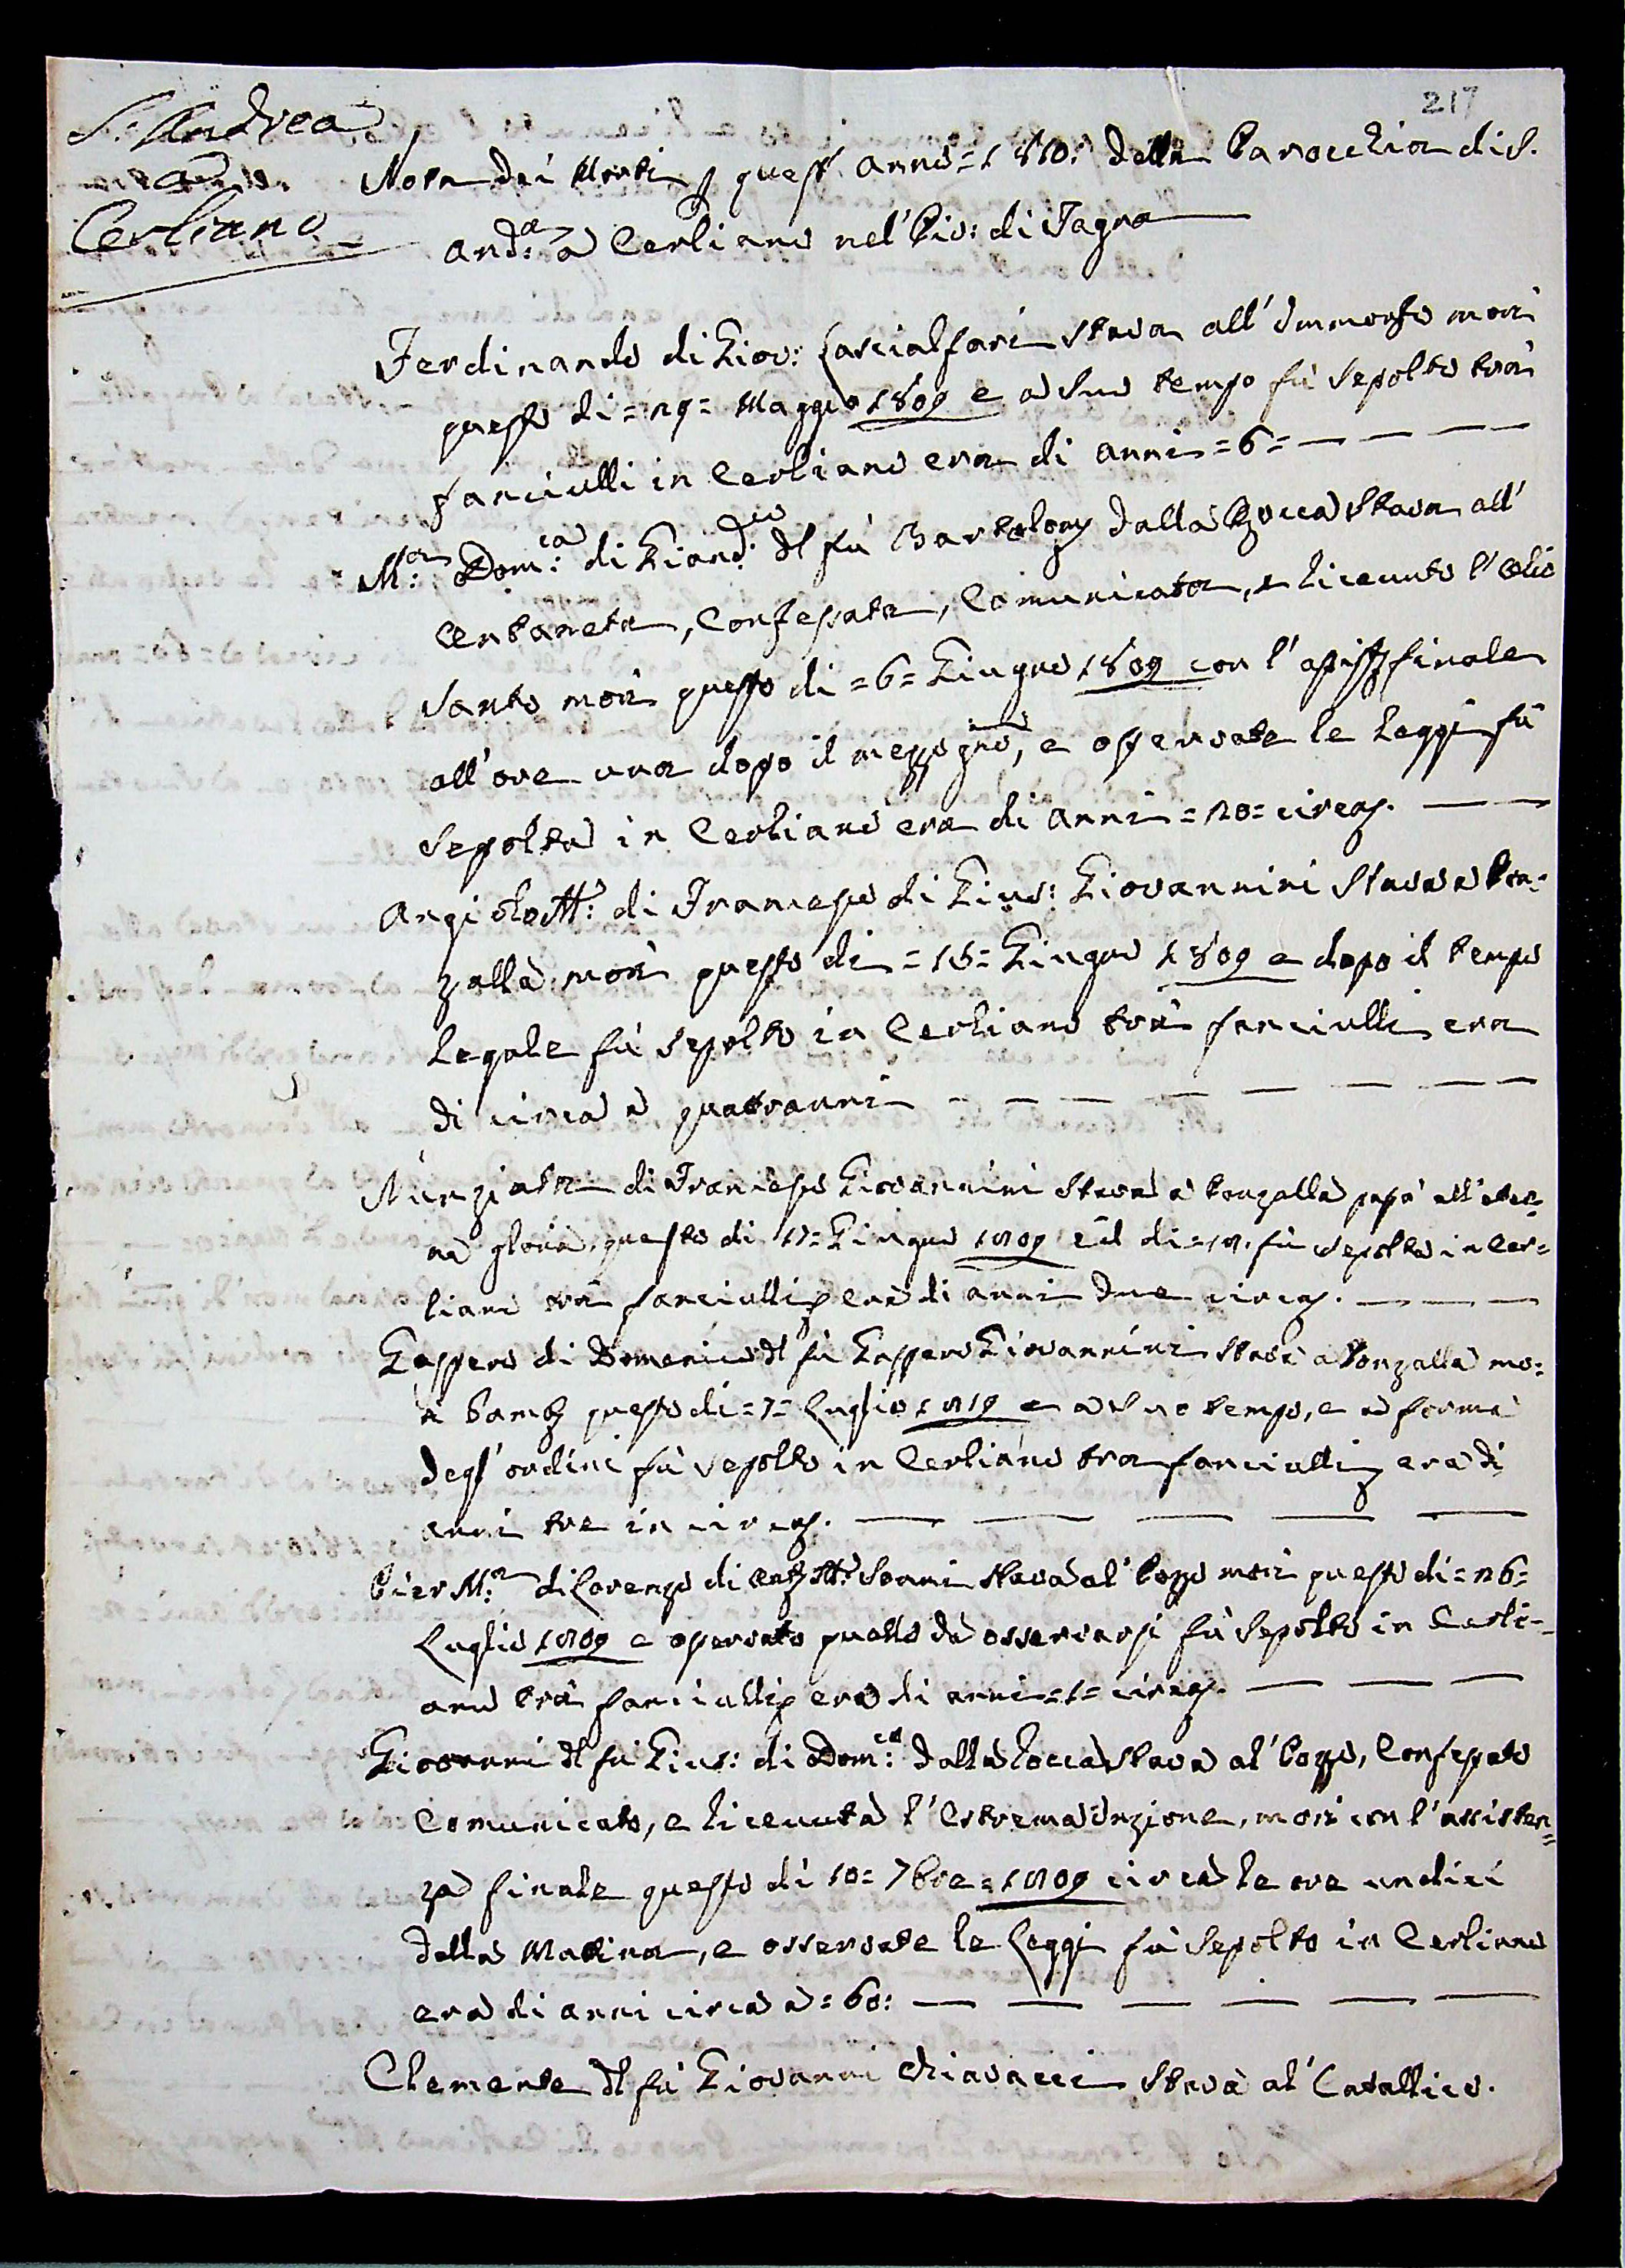 217
S. Andrea
a
Cerliano
Nota dei Morti p quest' anno = 1810: della Parocchia di S.
And:ª a Cerliano nel' Pio: di Fagna
Ferdinando di Giov: Cascialfari stava all' Immorto morì
questo dì = 29 = Maggio 1809 e a Suo tempo fù Sepolto trà
fanciulli in Cerliano era di anni = 6 =
M:ª Dom:ca di Giand:co dl fù Bartolom dalla Rocca Stava all'
Centaneta, Confessata, Comunicata, e Ricevuto l' Olio
Santo morì questo dì = 6 = Giugno 1809 con l' assist finale
all' ore una dopo il mezzo gno, e osservate le Leggi fù
Sepolta in Cerliano era di anni = 20 = circa.
Angiolo M:ª di Francesco di Gius: Giovannini Stava a Ron-
zalla morì questo dì = 15 = Giugno 1809 e dopo il tempo
Legale fù sepolto in Cerliano trà fanciulli era
di circa a quatranni
Nunziata di Francesco Giovannini Stava a Ronzalla passò all' eter-
na gloria questo dì 17 = Giugno 1809 e il dì = 18. fù sepolta in Cer=
liano trà fanciulli era di anni due circa.
Gasparo di Domenico dl fù Gasparo Giovannini stava a Ronzalla mo=
rì questo dì = 7 = Luglio 1809 e a Suo tempo, e a forma
degl' ordini fù sepolto in Cerliano tra fanciulli era di
anni tre in circa.
Pier M:ª di Lorenzo di Ant Sonni stava al' Pozzo morì questo dì = 26 =
Luglio 1809 e osservato quello da osservarsi fù Sepolto in Cerli-
ano trà fanciulli era di anni = 1 = circa.
Giovanni dl fù Gius: di Dom:co dalla Rocca stava al' Pozzo, Confessato
Comunicato, e Ricevuta l' Estrema Unzione, morì con l' assisten=
za finale questo dì 10 = 7bre = 1809 circa le ore undici
della Mattina, e osservate le Leggi fù Sepolto in Cerliano
era di anni circa a = 60:
Clemente dl fù Giovanni Chiavacci Stava al' Catallico.